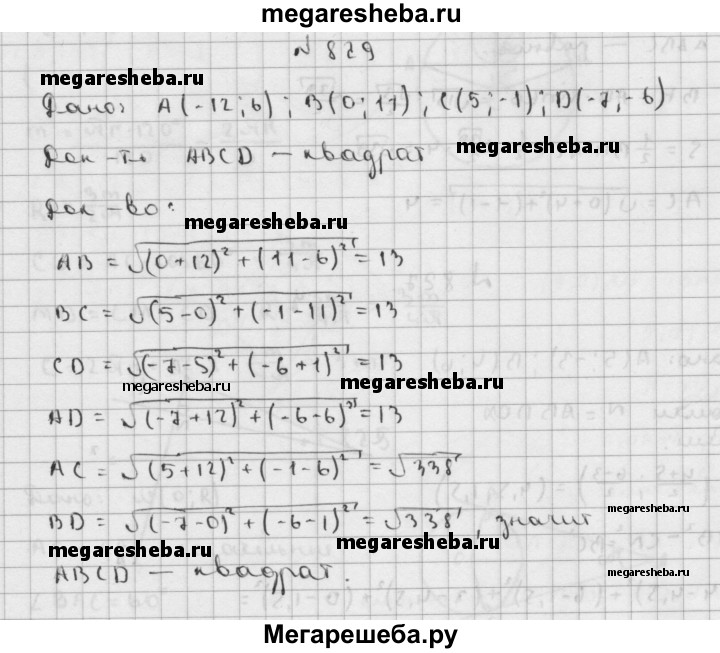 megaresheba.ru
№ 829
megaresheba.ru
Дано: A(-12; 6); B(0; 11); C(5; -1); D(-7; -6)
Док-ть ABCD – квадрат megaresheba.ru
Док-во:
megaresheba.ru
AB = √(0+12)² + (11-6)² = 13
BC = √(5-0)² + (-1-11)² = 13
CD = √(-7-5)² + (-6+1)² = 13
megaresheba.ru megaresheba.ru
AD = √(-7+12)² + (-6-6)² = 13
AC = √(5+12)² + (-1-6)² = √338
megaresheba.ru
BD = √(-7-0)² + (-6-1)² = √338, значит
megaresheba.ru megaresheba.ru
ABCD – квадрат. megaresheba.ru
Мегарешеба.ру